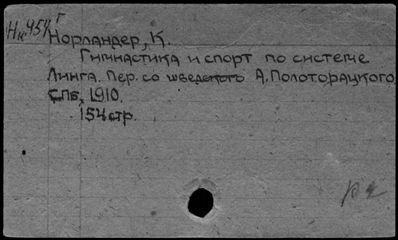 Нк454г
Норландер, К.
Гимнастика и спорт по системе
Линга. Пер. со шведского А. Полоторацкого
СПб, 1910.
154 стр.